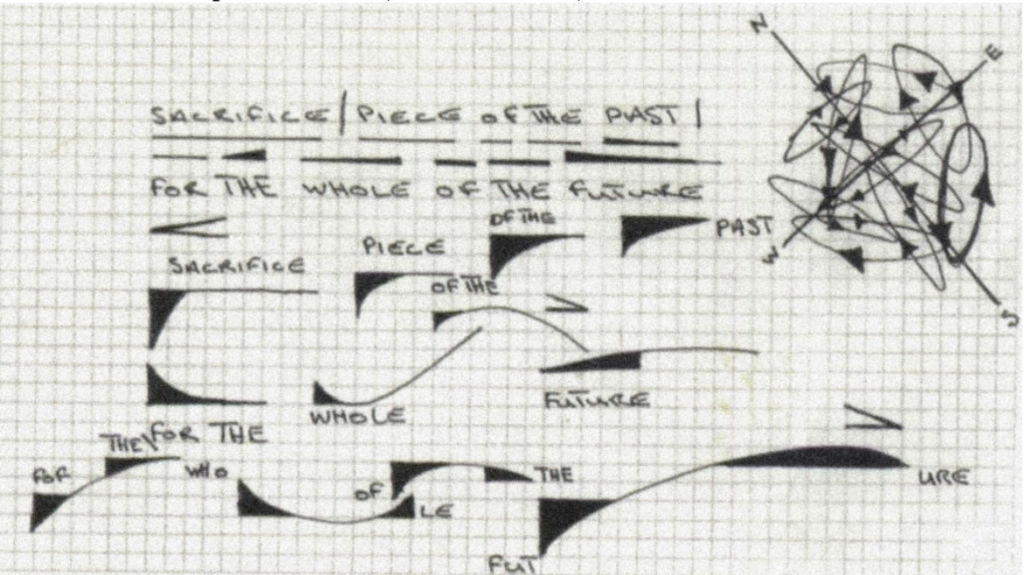 N
E
SACRIFICE / PIECE OF THE PAST /
FOR THE WHOLE OF THE FUTURE
OF THE
PAST
PIECE
W
SACRIFICE
OF THE
S
FUTURE
WHOLE
FOR THE
THE
FOR
WHO
OF
THE
URE
LE
FUT